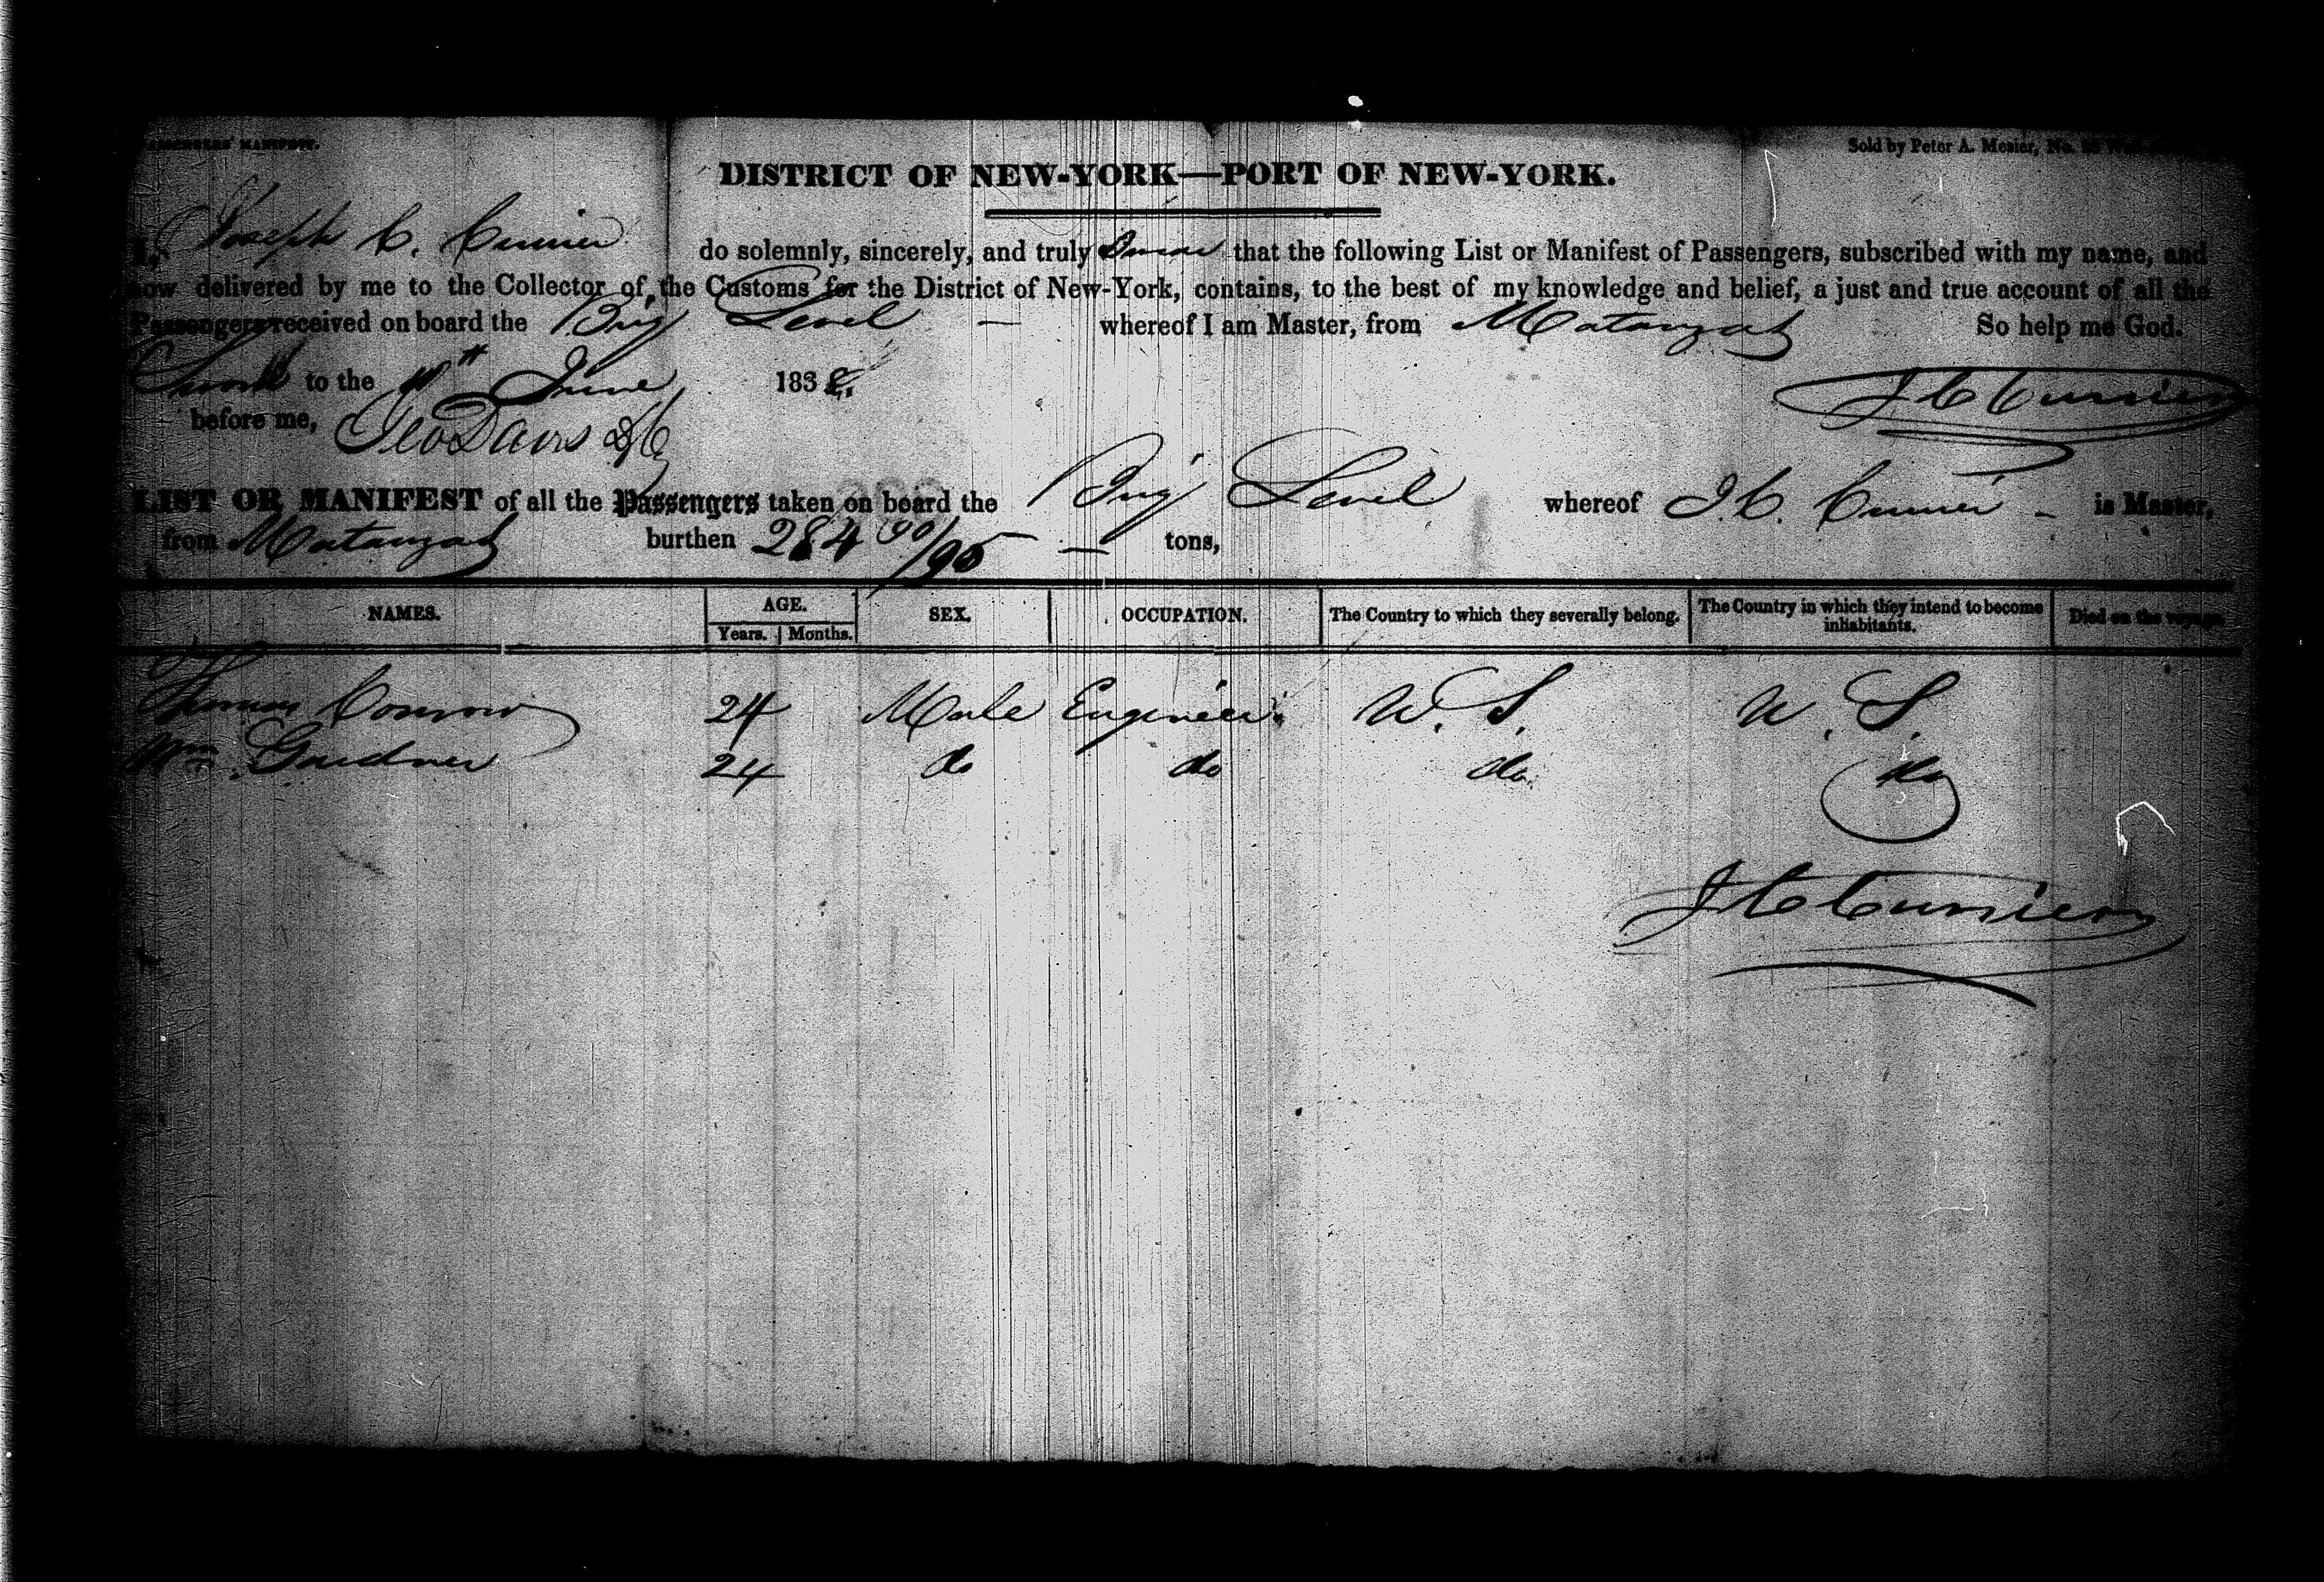 PASSENGERS' MANIFEST.
Sold by Peter A. Mesier, No.
DISTRICT OF NEW-YORK—PORT OF NEW-YORK.
I, Joseph C. Currier do solemnly, sincerely, and truly Swear that the following List or Manifest of Passengers, subscribed with my name, and
now delivered by me to the Collector of the Customs for the District of New-York, contains, to the best of my knowledge and belief, a just and true account of all the
Passengers received on board the Brig Level — whereof I am Master, from Matanzas So help me God.
Sworn to the June 1838.
before me, Geo Davis DC
J C Currier
LIST OR MANIFEST of all the Passengers taken on board the Brig Level whereof J. C. Currier — is Master,
from Matanzas burthen 284 90/95 — tons,
NAMES. AGE. SEX. OCCUPATION. The Country to which they severally belong. The Country in which they intend to become inhabitants. Died on the voyage.
Years. Months.
Thomas 24 Male Engineer. U. S. U. S.
Wm. Gardner 24 do do do do
J C Currier